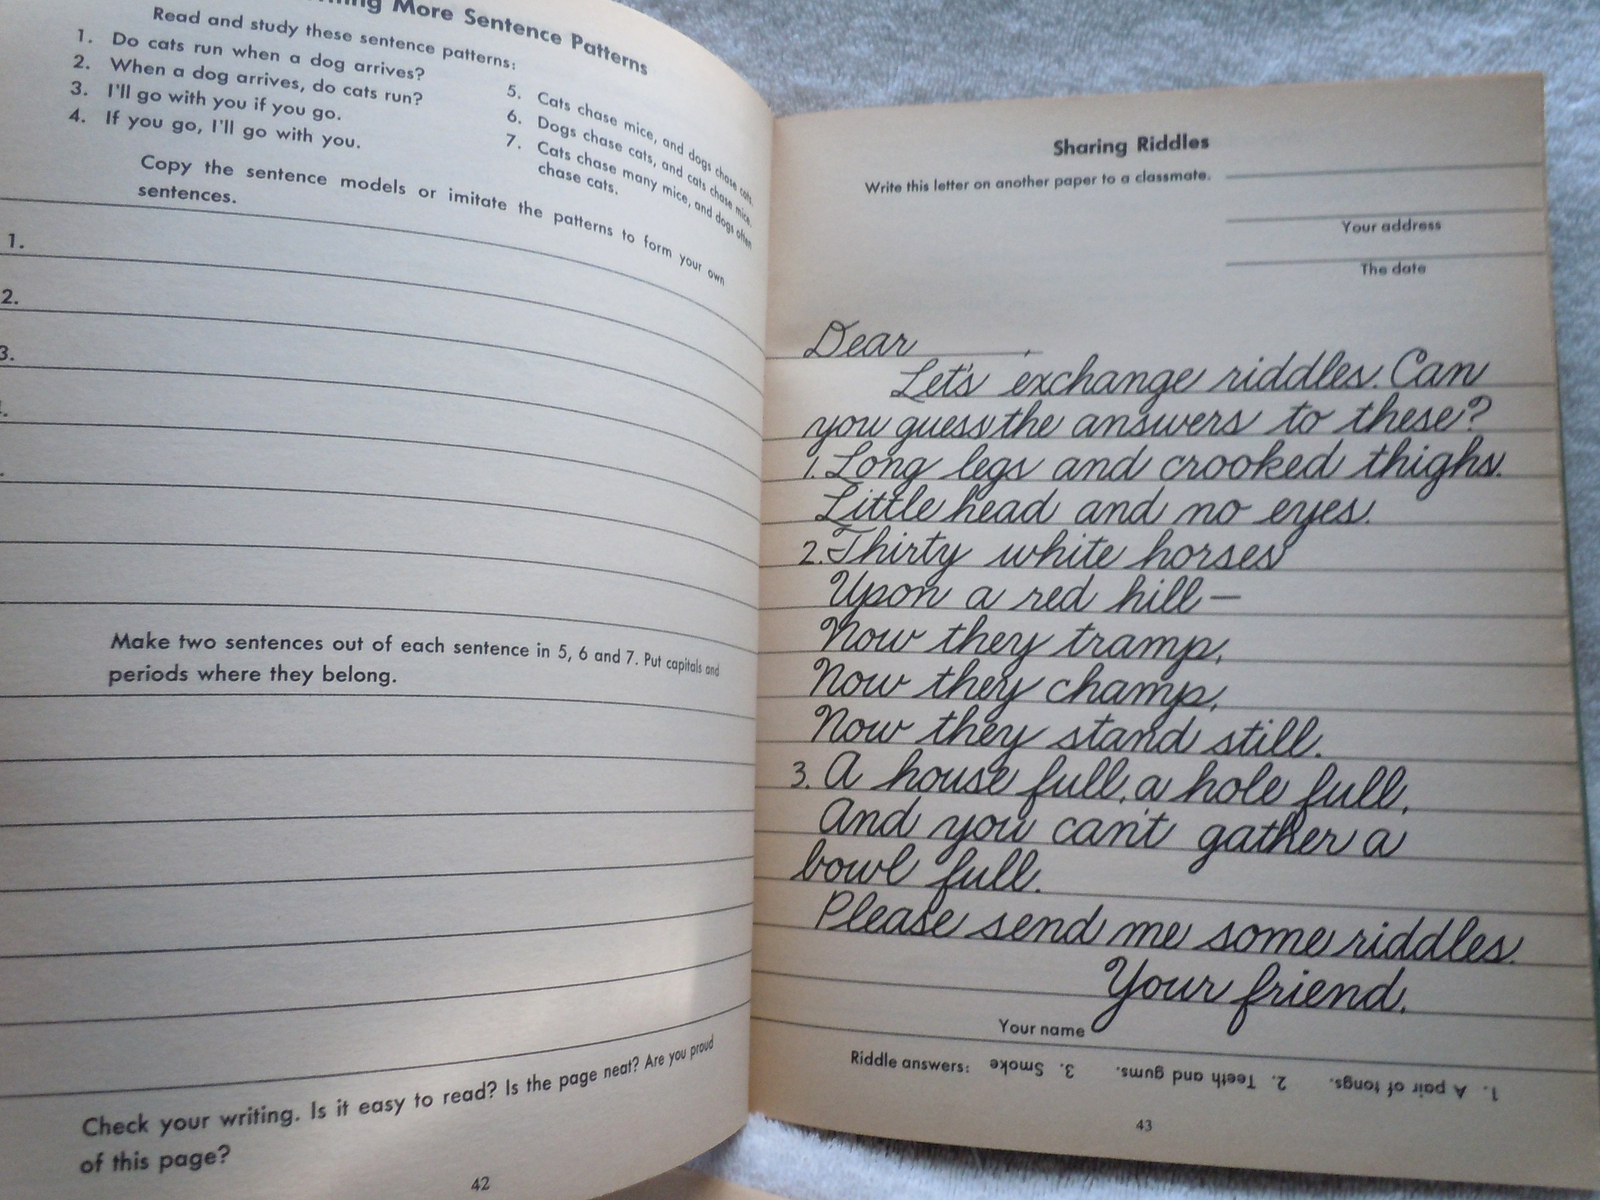 More Sentence Patterns
Read and study these sentence patterns:
1. Do cats run when a dog arrives?
2. When a dog arrives, do cats run?
3. I'll go with you if you go.
4. If you go, I'll go with you.
5. Cats chase mice, and dogs chase cats.
6. Dogs chase cats, and cats chase mice.
7. Cats chase many mice, and dogs often
chase cats.
Copy the sentence models or imitate the patterns to form your own
sentences.
1.
2.
3.
Make two sentences out of each sentence in 5, 6 and 7. Put capitals and
periods where they belong.
Check your writing. Is it easy to read? Is the page neat? Are you proud
of this page?
42
Sharing Riddles
Write this letter on another paper to a classmate.
Your address
The date
Dear ,
Let's exchange riddles. Can
you guess the answers to these?
1. Long legs and crooked thighs.
Little head and no eyes.
2. Thirty white horses
Upon a red hill—
Now they tramp,
Now they champ,
Now they stand still.
3. A house full, a hole full,
And you can't gather a
bowl full.
Please send me some riddles.
Your friend,
Your name
Riddle answers: 1. A pair of tongs. 2. Teeth and gums. 3. Smoke
43